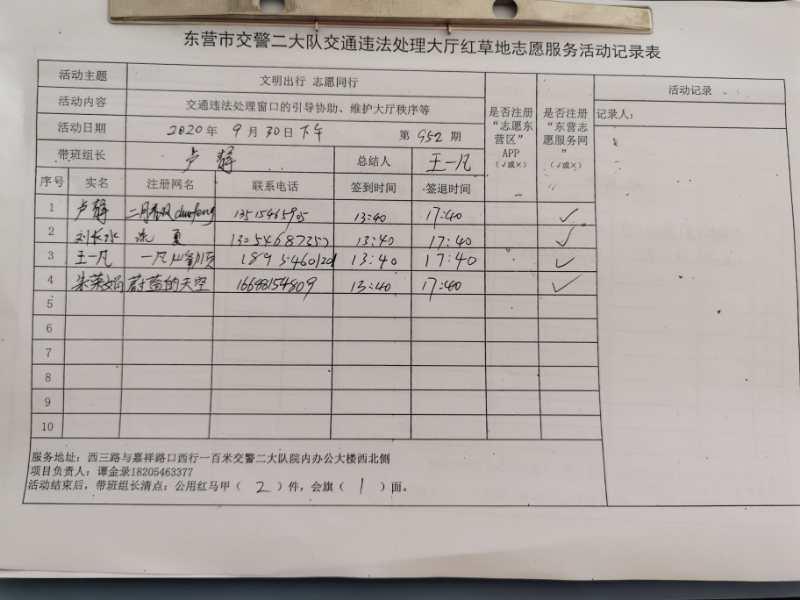 东营市交警二大队交通违法处理大厅红草地志愿服务活动记录表
活动主题 文明出行 志愿同行
活动内容 交通违法处理窗口的引导协助、维护大厅秩序等
活动日期 2020年 9月30日下午 第 952 期
带班组长 卢静 总结人 王一凡
是否注册“志愿东营区”APP（√或×）
是否注册“东营志愿服务网”（√或×）
活动记录
记录人:
序号 实名 注册网名 联系电话 签到时间 签退时间
1 卢静 13:40 17:40 ✓
2 刘长水 13:40 17:40 ✓
3 王一凡 13:40 17:40 ✓
4 蔚蓝的天空 16688154809 13:40 17:40 ✓
5
6
7
8
9
10
服务地址：西三路与嘉祥路口西行一百米交警二大队院内办公大楼西北侧
项目负责人：谭金录18205463377
活动结束后，带班组长清点：公用红马甲（ 2 ）件，会旗（ 1 ）面。